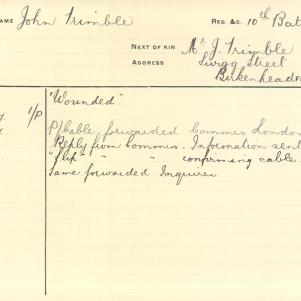 NAME John Trimble REG. &C. 10th Bat
NEXT OF KIN Mr J. Trimble
ADDRESS Street
Birkenhead
1/P "Wounded".
P/Cable forwarded Commrs London
Reply from Commrs. Information sent
"slip" " " confirming cable
Same forwarded Inquirer